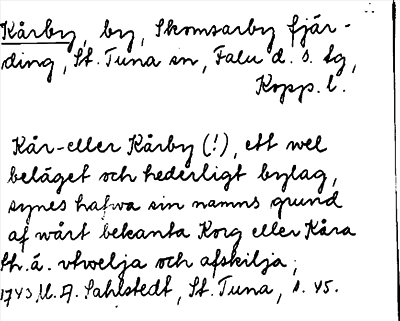 Kårby, by, Skomsarby fjär-
ding, St. Tuna sn, Falu d. s. lg,
Kopp. l.
Kår- eller Kårby (!), ett wel
beläget och hederligt bylag,
synes hafwa sin namns grund
af wårt bekanta Korg eller Kåra
th. ä. vtwelja och afskilja;
1743, U. A. Sahlstedt, St. Tuna, s. 45.